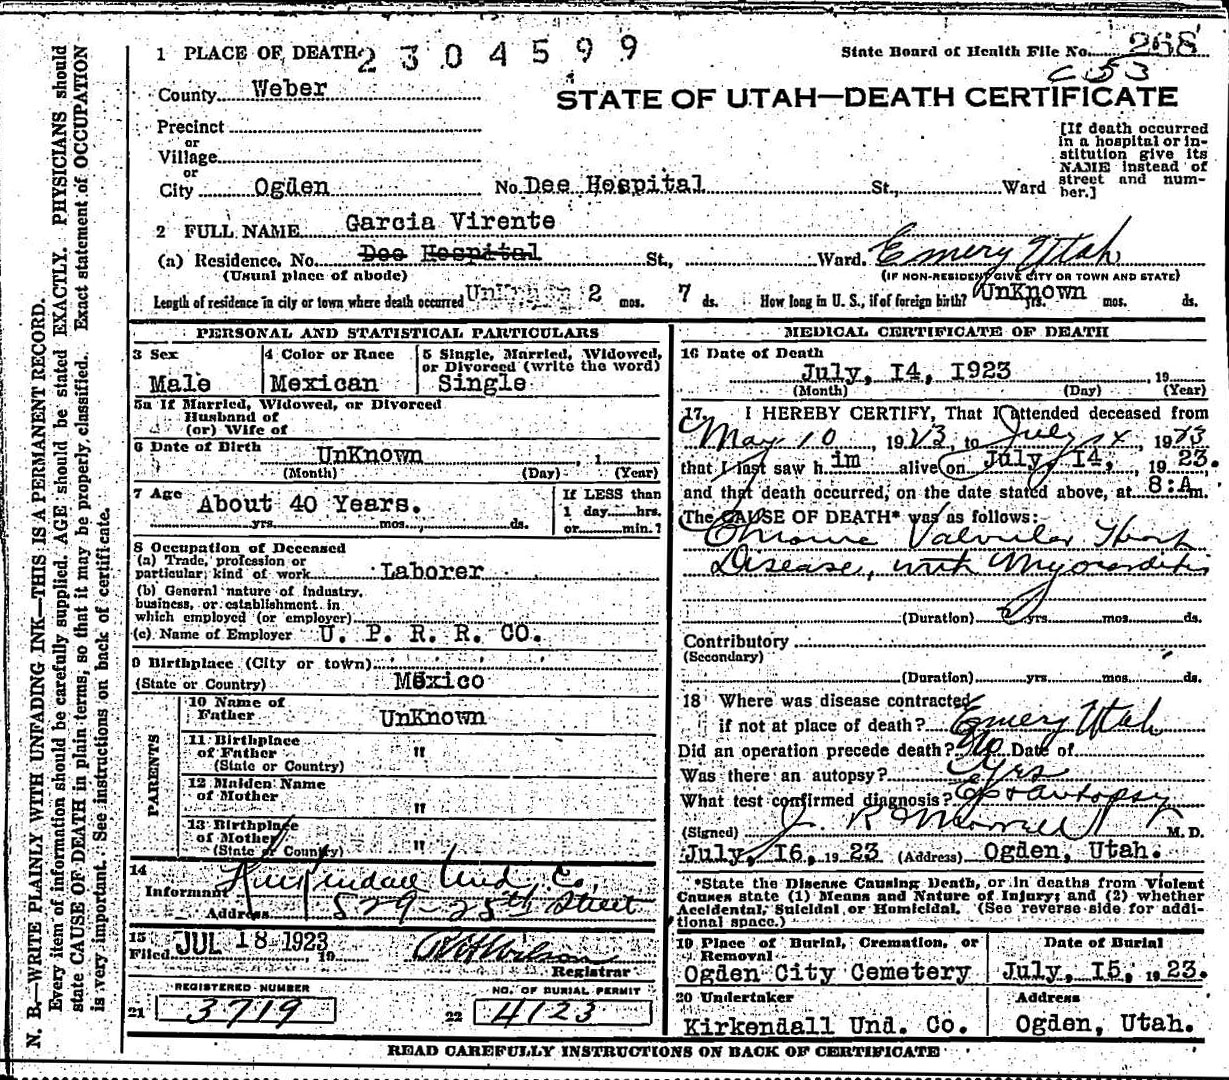 1 PLACE OF DEATH 2304599
State Board of Health File No. 268
C 53
County Weber
STATE OF UTAH—DEATH CERTIFICATE
Precinct
or
Village
or
City Ogden No. Dee Hospital St., Ward
[If death occurred
in a hospital or in-
stitution give its
NAME instead of
street and num-
ber.]
2 FULL NAME Garcia Virente
(a) Residence, No. Dee Hospital St., Ward. Emery Utah
(Usual place of abode) (IF NON-RESIDENT GIVE CITY OR TOWN AND STATE)
Length of residence in city or town where death occurred UnKnown 2 mos. 7 ds. How long in U. S., if of foreign birth? UnKnown yrs. mos. ds.
PERSONAL AND STATISTICAL PARTICULARS
3 Sex
Male
4 Color or Race
Mexican
5 Single, Married, Widowed,
or Divorced (write the word)
Single
5a If Married, Widowed, or Divorced
Husband of
(or) Wife of
6 Date of Birth UnKnown , 1
(Month) (Day) (Year)
7 Age About 40 Years.
yrs. mos. ds.
If LESS than
1 day hrs.
or min.?
8 Occupation of Deceased
(a) Trade, profession or
particular kind of work Laborer
(b) General nature of Industry,
business, or establishment in
which employed (or employer)
(c) Name of Employer U. P. R. R. CO.
9 Birthplace (City or town)
(State or Country) Mexico
PARENTS
10 Name of
Father UnKnown
11 Birthplace
of Father "
(State or Country)
12 Maiden Name
of Mother "
13 Birthplace
of Mother "
(State or Country)
14
Informant Kirkendall Und. Co.
Address 529-25th Street
15
Filed JUL 18 1923, 19 Registrar
REGISTERED NUMBER
21 3719
NO. OF BURIAL PERMIT
22 4123
MEDICAL CERTIFICATE OF DEATH
16 Date of Death
July, I4, I923 , 19
(Month) (Day) (Year)
17 I HEREBY CERTIFY, That I attended deceased from
May 10, 1923 to July 14, 1923
that I last saw h im alive on July, I4, , 19 23.
and that death occurred, on the date stated above, at 8:A m.
The CAUSE OF DEATH* was as follows:
Chronic Valvular Heart
Disease, with Myocarditis
(Duration) yrs. mos. ds.
Contributory
(Secondary)
(Duration) yrs. mos. ds.
18 Where was disease contracted
if not at place of death? Emery Utah
Did an operation precede death? No Date of
Was there an autopsy? Yes
What test confirmed diagnosis? autopsy
(Signed) J. R. Morrell M. D.
July, I6, 19 23 (Address) Ogden, Utah.
*State the Disease Causing Death, or in deaths from Violent
Causes state (1) Means and Nature of Injury; and (2) whether
Accidental, Suicidal or Homicidal. (See reverse side for addi-
tional space.)
19 Place of Burial, Cremation, or
Removal
Ogden City Cemetery
Date of Burial
July, I5, 1923.
20 Undertaker
Kirkendall Und. Co.
Address
Ogden, Utah.
READ CAREFULLY INSTRUCTIONS ON BACK OF CERTIFICATE
N. B.—WRITE PLAINLY WITH UNFADING INK—THIS IS A PERMANENT RECORD.
Every item of information should be carefully supplied. AGE should be stated EXACTLY. PHYSICIANS should
state CAUSE OF DEATH in plain terms, so that it may be properly classified. Exact statement of OCCUPATION
is very important. See instructions on back of certificate.